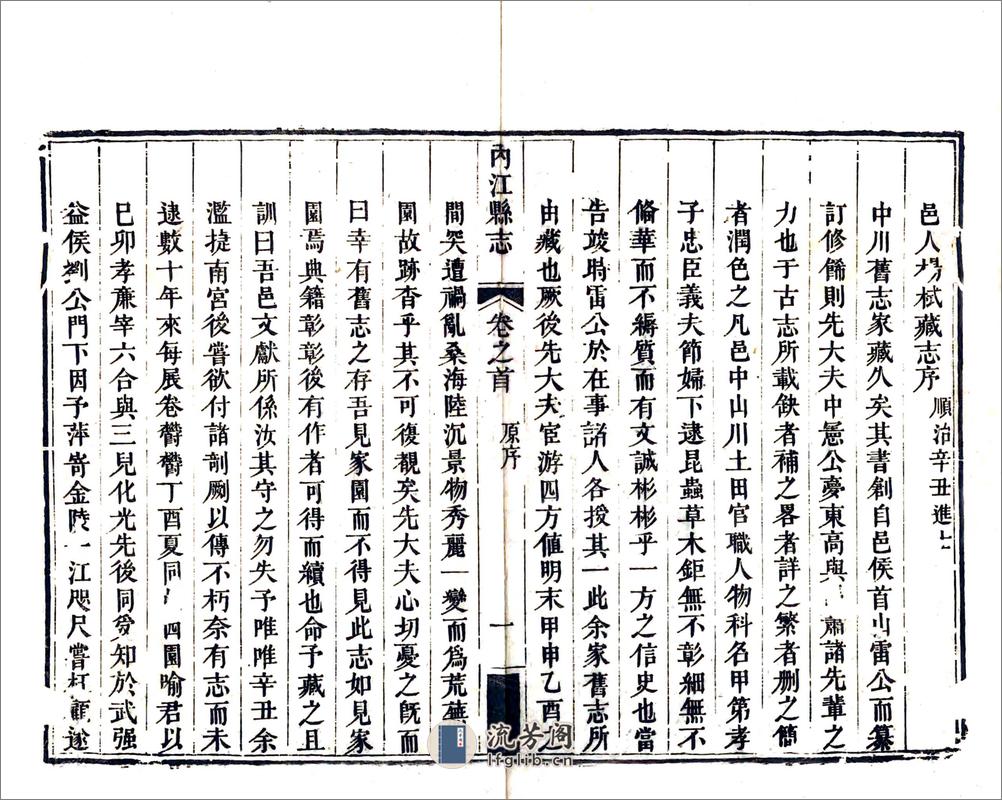 邑人楊栻藏志序 順治辛丑進士
中川舊志家藏久矣其書創自邑侯首山雷公而纂
訂修餙則先大夫中憲公憂東高與 肅諸先輩之
力也于古志所載缺者補之畧者詳之繁者刪之簡
者潤色之凡邑中山川土田官職人物科名甲第孝
子忠臣義夫節婦下逮昆蟲草木鉅無不彰細無不
偹華而不縟質而有文誠彬彬乎一方之信史也當
告竣時雷公於在事諸人各授其一此余家舊志所
由藏也厥後先大夫宦游四方值明末甲申乙酉
內江縣志 卷之首 原序 一
間突遭禍亂桑海陸沉景物秀麗一變而爲荒蕪
園故跡杳乎其不可復覩矣先大夫心切憂之旣而
曰幸有舊志之存吾見家園而不得見此志如見家
園焉典籍彰彰後有作者可得而續也命予藏之且
訓曰吾邑文獻所係汝其守之勿失予唯唯辛丑余
濫捷南宮後嘗欲付諸剞劂以傳不朽奈有志而未
逮數十年來每展卷欝欝丁酉夏同 四園喻君以
巳卯孝亷宰六合與三兒化光先後同受知於武强
益侯劉公門下因予萍寄金陵一江咫尺嘗枉顧遂
流芳阁
lfglib.cn